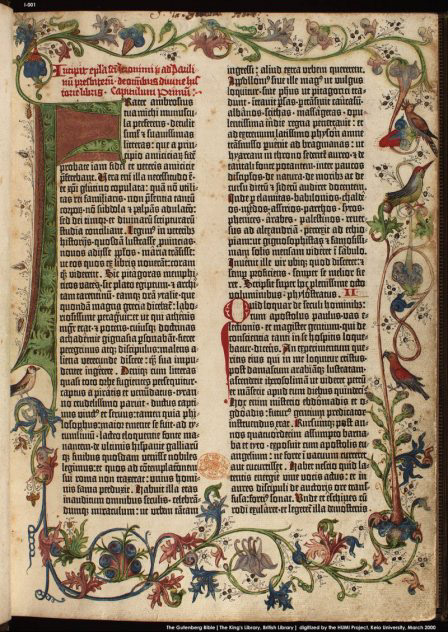 I-001
Incipit epistola sancti iheronimi ad paulinum
presbiterum de omnibus divine hystorie
libris. Capitulum primum.
Frater ambrosius
tua michi munuscula
perferens. detulit
simul et suavissimas
litteras: que a principio
amicicie fidem
probate iam fidei et veteris amicicie
preferebant. Vera enim illa necessitudo est.
et cristi glutino copulata: quam non utilitas
rei familiaris. non presentia tantum
corporum. non subdola et palpans adulacio:
sed dei timor. et divinarum scripturarum
studia conciliant. Legimus in veteribus
historiis. quosdam lustrasse provincias.
novos adiisse populos. maria transisse:
ut eos quos ex libris noverant: coram
quoque viderent. Sic pitagoras memphiticos
vates. sic plato egiptum. et architam
tarentinum. eamque oram ytalie. que
quondam magna grecia dicebatur: laboriosissime
peragravit: ut qui athenis
magister erat. et potens. cuiusque doctrinas
achademie gignasia personabant:
fieret
peregrinus atque discipulus: malens aliena
verecunde discere: quam sua impudenter
ingerere. Denique cum litteras
quasi toto orbe fugientes persequitur.
captus a piratis et venundatus. tyranno
crudelissimo paruit.
philosophus: maior emente se fuit.
ad tytum livium: lacteo eloquentie fonte manantem.
de ultimis hispanie galliarumque
finibus quosdam venisse nobiles
legimus:
roma non traxerat: unius hominis
fama perduxit. Habuit illa etas
inauditum omnibus seculis. celebrandumque
miraculum: ut urbem tantam
ingressi: aliud extra urbem quererent.
Apollonius sive ille magus ut vulgus
loquitur. sive philosophus ut pitagorici tradunt.
intravit persas. pertransivit caucasum.
albanos. scithas. massagetas. opulentissima
indie regna penetravit: et
ad extremum latissimo physon amne
transmisso pervenit ad bragmanas: ut
hyarcam in throno sedentem aureo. et de
tantali fonte potantem. inter paucos
discipulos. de natura. de moribus ac de
cursu dierum et siderum audiret docentem.
Inde per elamitas. babilonios. chaldeos.
medos. assirios. parthos. syros.
phenices. arabes. palestinos. reversus
ad alexandriam: perrexit ad ethiopiam:
ut gignosophistas et famosissimam
solis mensam videret in sabulo.
Invenit ille vir ubique quod disceret: et
semper proficiens. semper se melior fieret.
Scripsit super hoc plenissime octo
voluminibus. phylostratus. II.
Quid loquar de seculi hominibus:
cum apostolus paulus. vas electionis.
et magister gentium. qui de
conscientia tanti in se hospitis loquebatur.
dicens: An experimentum queritis
eius qui in me loquitur cristus.
post damascum arabiamque lustratam:
ascenderit iherosolimam ut videret petrum
et manserit apud eum diebus quindecim.
Hoc enim misterio ebdomadis et ogdoadis:
futurus gentium predicator
instruendus erat. Rursumque post annos
quatuordecim assumpto barnaba
et tyto: exposuit cum apostolis evangelium:
ne forte in vacuum curreret
aut cucurrisset. Habet nescio quid latentis
energie vive vocis actus: et in
aures discipuli de auctoris ore transfusa:
fortius sonat. Unde et eschines cum
rodi exularet. et legeretur illa demostenis
The Gutenberg Bible | The King's Library, British Library | digitized by the HUMI Project, Keio University, March 2000